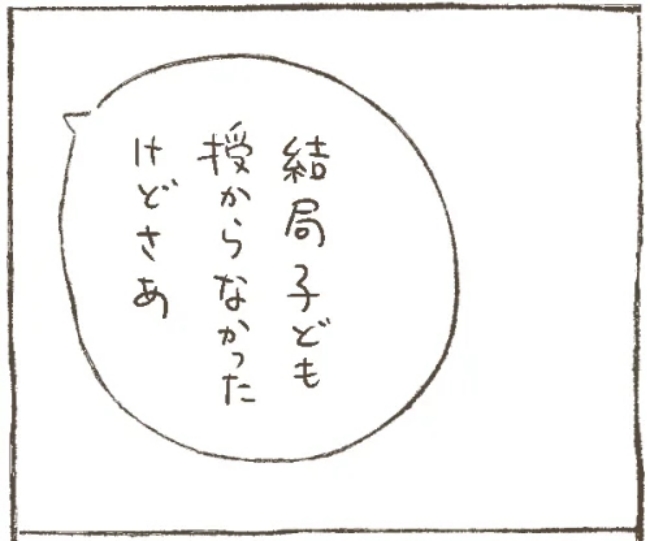 結局子ども
授からなかった
けどさあ